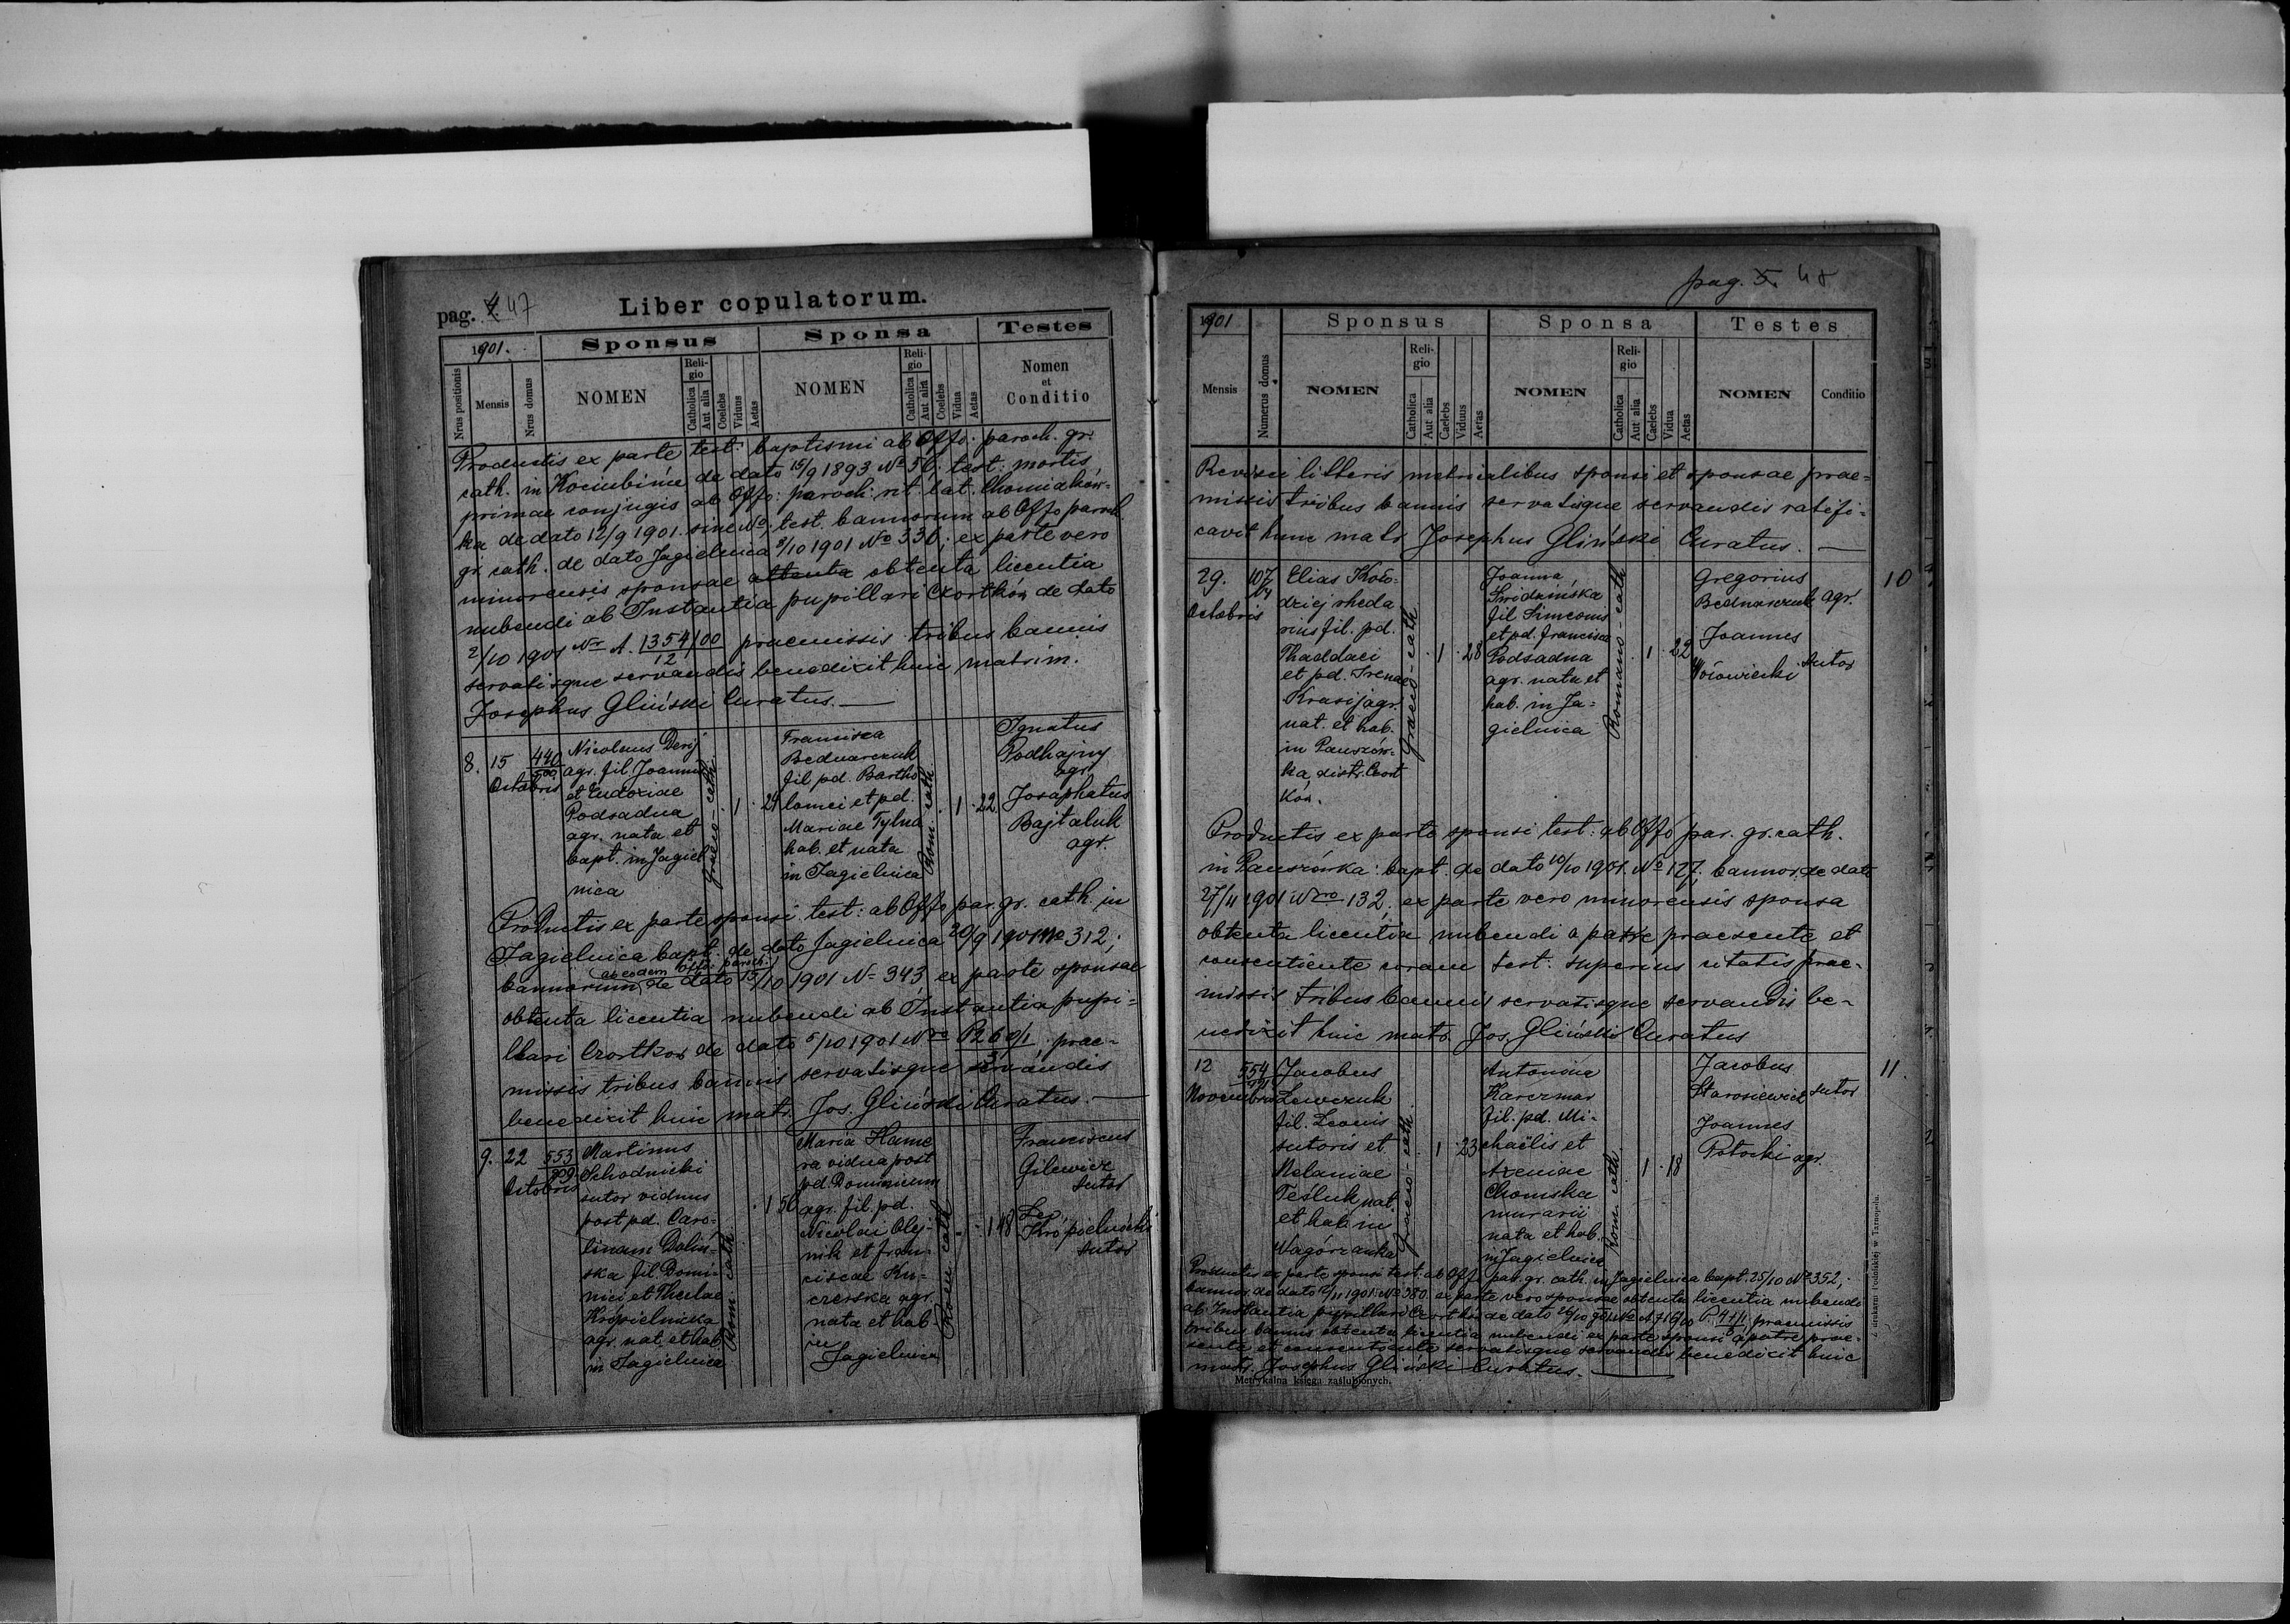 pag. 4. 47
Liber copulatorum.
1901.
Sponsus
Sponsa
Testes
Nrus positionis
Mensis
Nrus domus
NOMEN
Religio
Catholica
Aut alia
Coelebs
Viduus
Aetas
NOMEN
Religio
Catholica
Aut alia
Coelebs
Vidua
Aetas
Nomen
et
Conditio
Productis ex parte test: baptismi ab Offo: paroch. gr.
cath. in Kociubińce de dato 15/9 1893 No 56; test: mortis
primae conjugis ab Offo: paroch: rit. lat. Chomiaków-
ka de dato 12/9 1901. sine No; test. bannorum ab Offo paroch
gr. cath. de dato Jagielnica 8/10 1901 No 336; ex parte vero
minorensis sponsae obtenta licentia
nubendi ab Instantia pupillari Czortków de dato
2/10 1901 Nr A. 1354/00 / 12 praemissis tribus bannis
servatisque servandis benedixit huic matrim.
Josephus Gliński Curatus.
8.
15
Octobris
440
500
Nicolaus Derij
agr. fil. Joannis
et Eudoxiae
Podsadna
agr. nata et
bapt. in Jagiel
nica
Graeco-cath
1
24
Francisca
Bednarczuk
fil pd. Bartho
lomei et pd.
Mariae Tylna
hab. et nata
in Jagielnica
Rom. cath
1
22
Ignatus
Podhajny
agr.
Josaphatus
Bajtaluk
agr.
Productis ex parte sponsi test: ab Offo par. gr. cath. in
Jagielnica bapt. de dato Jagielnica 20/9 1901 No 312;
ab eodem Offo. paroch.
bannorum de dato 15/10 1901 No 343, ex parte sponsae
obtenta licentia nubendi ab Instantia pupi-
llari Czortków de dato 5/10 1901 Nro; prae-
missis tribus bannis servatisque servandis
benedixit huic matr. Jos. Gliński Curatus.
9.
22
Octobris
553
909
Martinus
Schodnicki
sutor viduus
post pd. Caro-
linam Dolin-
ska fil. Domi-
nici et Theclae
Krópielnicka
agr. nat. et hab.
in Jagielnica
Rom. cath
1
50
Maria Hame
ra vidua post
pd. Dominicum
agr. fil. pd.
Nicolai Olej-
nik et Fran-
ciscae Ku-
czerska agr.
nata et hab
in
Jagielnica
Rom. cath
1
48
Franciscus
Gilewicz
sutor
Leo
Krópielnicki
sutor
pag. 5. 48
1901
Sponsus
Sponsa
Testes
Mensis
Numerus domus
NOMEN
Religio
Catholica
Aut alia
Caelebs
Viduus
Aetas
NOMEN
Religio
Catholica
Aut alia
Caelebs
Vidua
Aetas
NOMEN
Conditio
Revisis litteris metricalibus sponsi et sponsae prae-
missis tribus bannis servatisque servandis ratifi-
cavit hunc matr Josephus Gliński Curatus.
29.
Octobris
107
64
Elias Koło-
dziej rheda
rius fil. pd.
Thaddaei
et pd. Irenae
Krasij agr.
nat. et hab.
in Pauszów-
ka, distr. Czort
ków.
Graeco-cath
1
28
Joanna
Swidzińska
fil Simeonis
et pd. Francisca
Podsadna
agr. nata et
hab. in Ja-
gielnica
Romano-cath
1
22
Gregorius
Bednarczuk agr.
Joannes
Wósowiecki sutor
10
Productis ex parte sponsi test: ab Offo par. gr. cath.
in Pauszówka: bapt. de dato 10/10 1901. No 127; bannor. de dato
27/11 1901 Nro 132; ex parte vero minorensis sponsa
obtenta licentia nubendi a patre praesente et
consentiente coram test. superius citatis prae-
missis tribus bannis servatisque servandis be-
nedixit huic matr. Jos. Gliński Curatus
12
Novembris
554
Jacobus
Lewczuk
fil. Leonis
sutoris et
Melaniae
Teśluk nat.
et hab in
Nagórzanka
Graeco-cath.
1
23
Antonina
Karczmar
fil. pd. Mi-
chaëlis et
Axeniae
Chomska
murarii
nata et hab.
in Jagielnica
Rom. cath
1
18
Jacobus
Starosiewicz sutor
Joannes
Potocki agr.
11.
Productis ex parte sponsi test. ab Offo par. gr. cath. in Jagielnica bapt. 25/10 No 352;
bannor. de dato 11 1901 No 380 ex parte vero sponsae obtenta licentia nubendi
ab Instantia pupillari Czortków de dato 26/10 901 No praemissis
tribus bannis obtenta licentia nubendi ex parte sponsi a patre prae-
sente et consentiente servatisque servandis benedixit huic
matr. Josephus Gliński Curatus.
Metrykalna księga zaślubionych.
Z drukarni Podolskiej w Tarnopolu.